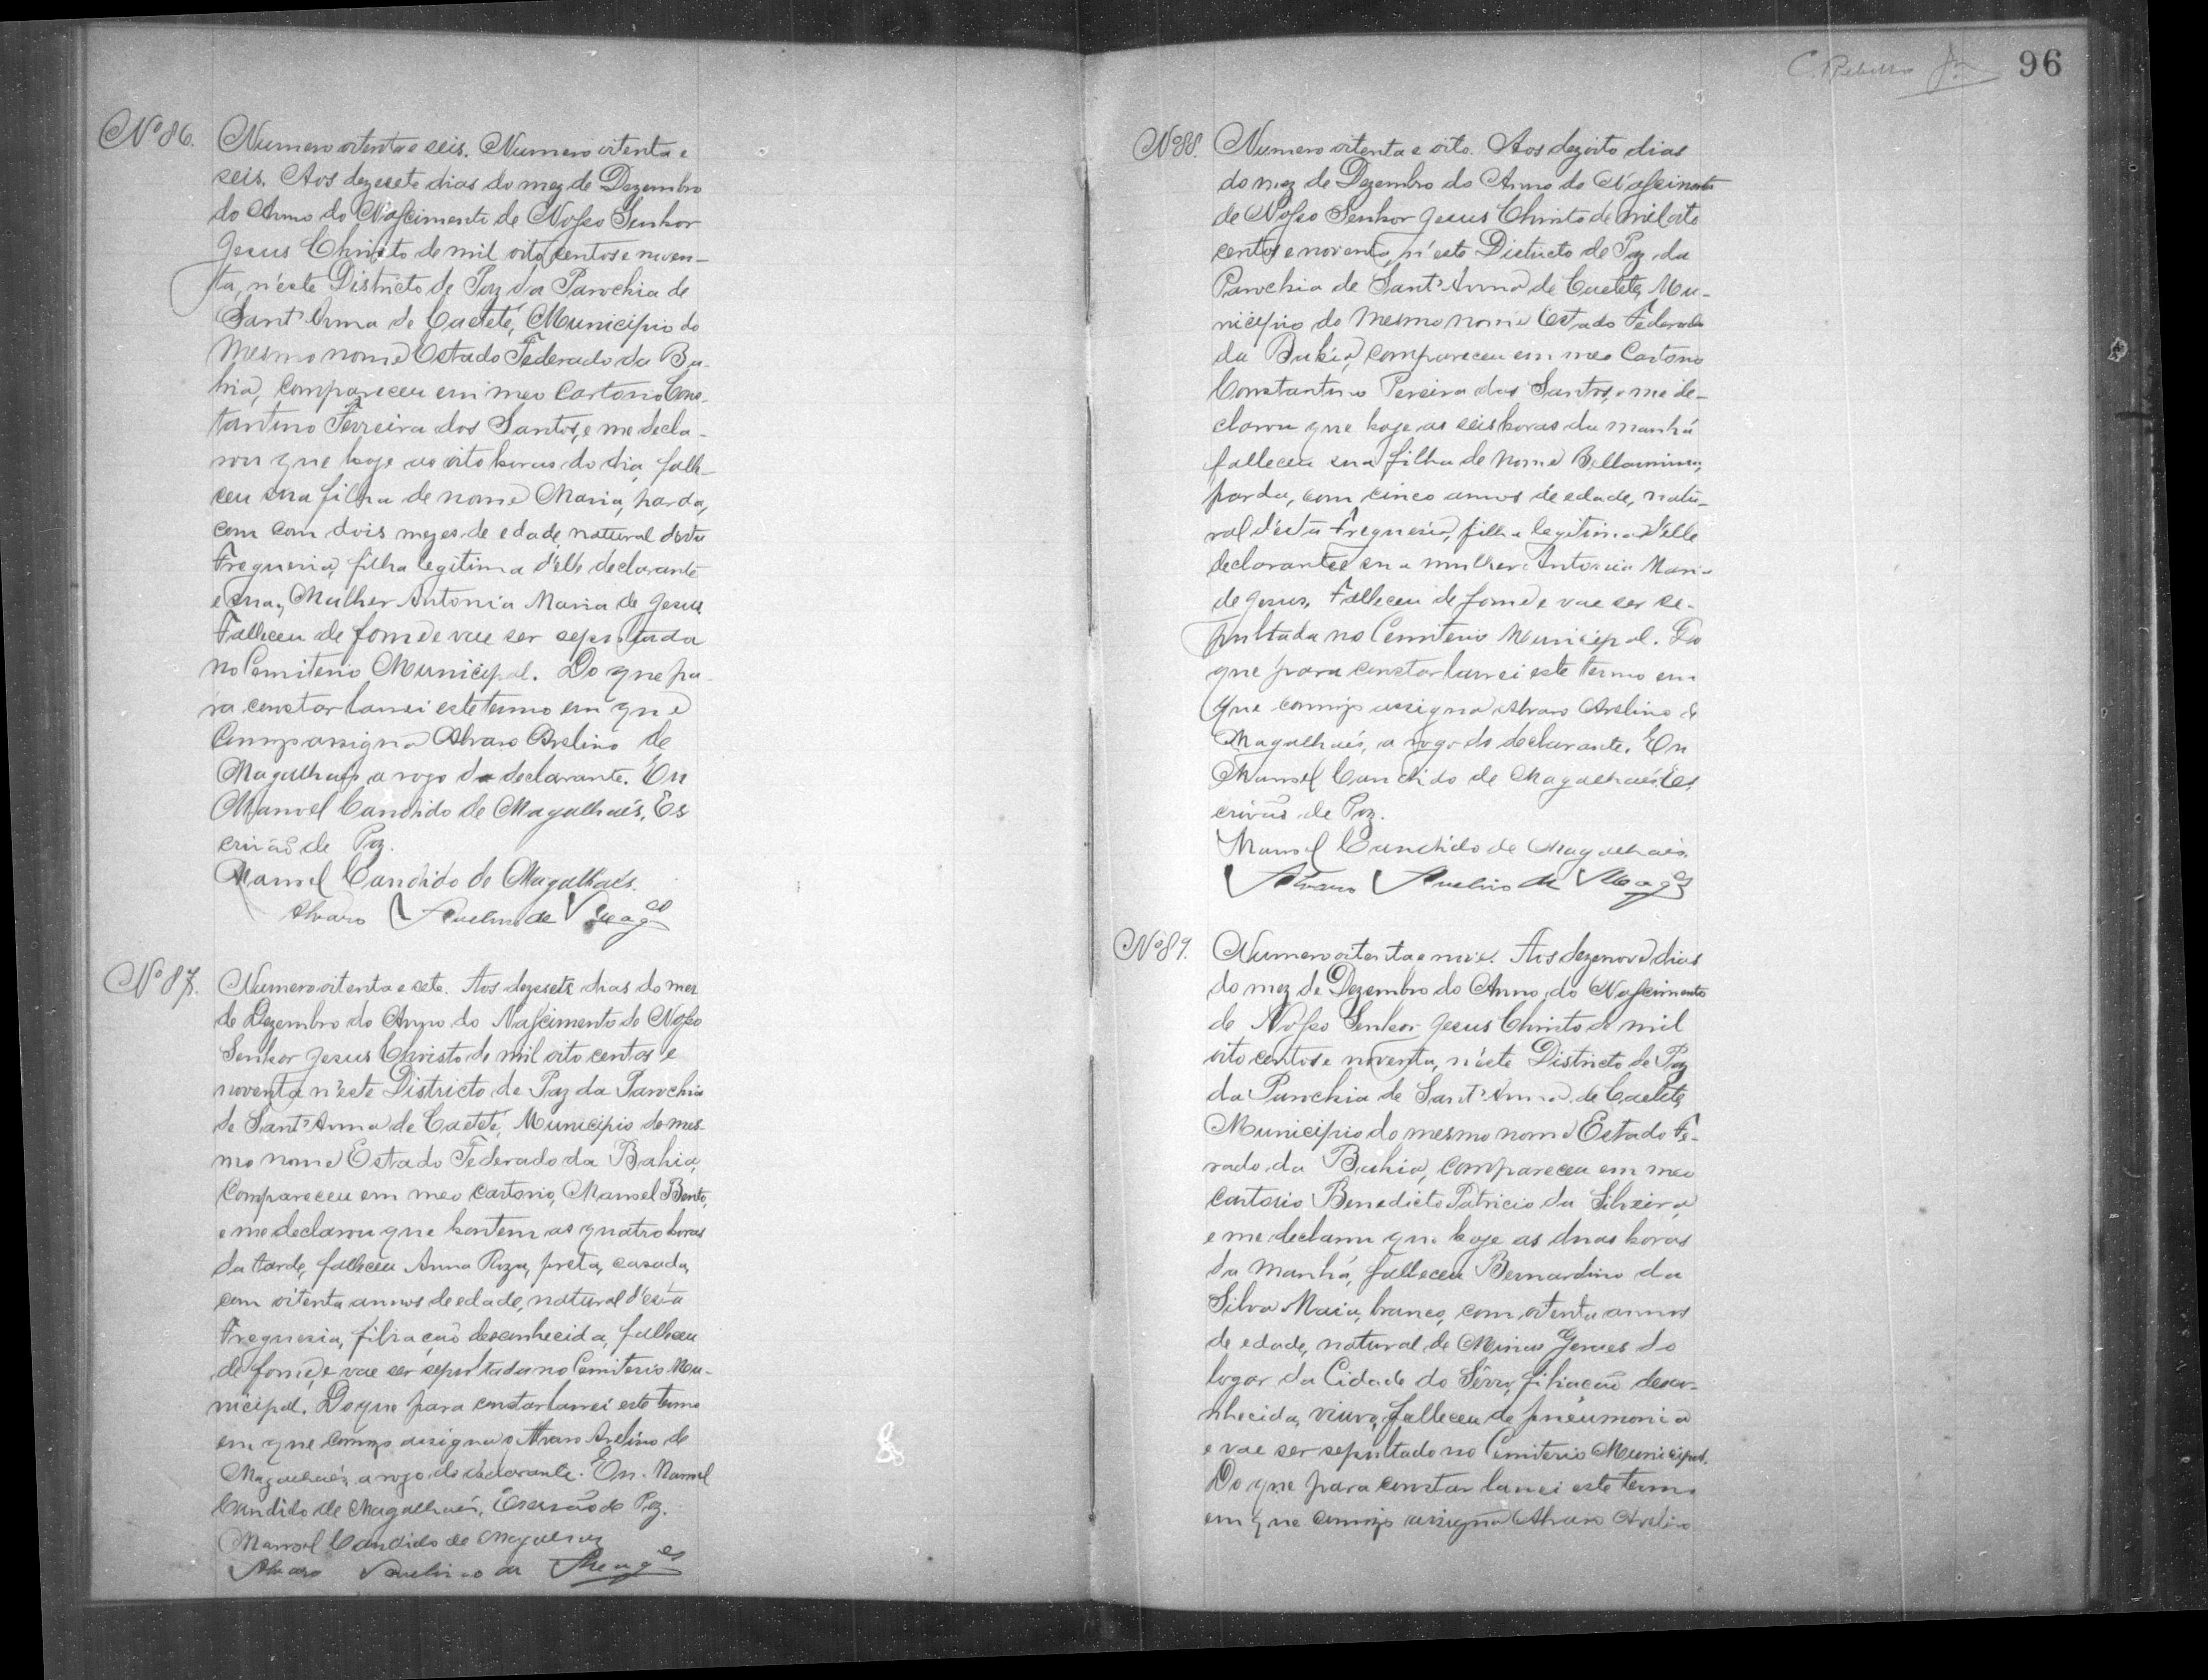 Nº 86. Numero oitenta e seis. Numero oitenta e
seis. Aos dezesete dias do mez de Dezembro
do Anno do Nascimento de Nosso Senhor
Jesus Christo de mil oito centos e noven-
ta, n'este Districto de Paz da Parochia de
Sant'Anna de Caeteté, Municipio do
mesmo nome Estado Federado da Ba-
hia, compareceu em meo Cartorio Cons-
tantino Ferreira dos Santos, e me decla-
rou que hoje as oito horas do dia, falle-
ceu sua filha de nome Maria, parda,
com com dois mezes de edade, natural desta
Freguesia, filha legitima d'elle declarante
e sua, Mulher Antonia Maria de Jesus.
Falleceu de fome e vae ser sepultada
no Cemiterio Municipal. Do que pa-
ra constar lavrei este termo em que
comigo assigna Alvaro Avelino de
Magalhaẽs, a rogo do declarante. Eu
Manoel Candido de Magalhaẽs, Es
crivão de Paz.
Manoel Candido de Magalhaẽs.
Alvaro Avelino de Mag.es
Nº 87. Numero oitenta e sete. Aos dezesete dias do mez
de Dezembro do Anno do Nascimento de Nosso
Senhor Jesus Christo de mil oito centos e
noventa n'este Districto de Paz da Parochia
de Sant'Anna de Caeteté, Municipio do mes-
mo nome Estado Federado da Bahia,
compareceu em meo Cartorio, Manoel Bento,
e me declarou que hontem as quatro horas
da tarde, falleceu Anna Roza, preta, casada,
com oitenta annos de edade, natural d'esta
Freguesia, filiação desconhecida, falleceu
de fome, e vae ser sepultada no Cemiterio Mu-
nicipal. Do que para constar lavrei este termo
em que comigo assigna o Alvaro Avelino de
Magalhaẽs, a rogo do declarante. Eu Manoel
Candido de Magalhaẽs, Escrivão de Paz.
Manoel Candido de Magalhaẽs
Alvaro Avelino de Mag.es
C. Rebello Jr. 96
Nº 88. Numero oitenta e oito. Aos dezoito dias
do mez de Dezembro do Anno do Nascimento
de Nosso Senhor Jesus Christo de mil oito
centos e noventa, n'este Districto de Paz da
Parochia de Sant'Anna de Caeteté, Mu-
nicipio do mesmo nome Estado Federado
da Bahia, compareceu em meo Cartorio
Constantino Pereira dos Santos, e me de-
clarou que hoje as seis horas da manhã
falleceu sua filha de nome Bellarmina,
parda, com cinco annos de edade, natu-
ral d'esta Freguesia, filha legitima d'elle
declarante e sua mulher Antonia Maria
de Jesus. Falleceu de fome e vae ser se-
pultada no Cemiterio Municipal. Do
que para constar lavrei este termo em
que comigo assigna Alvaro Avelino de
Magalhaẽs, a rogo do declarante. Eu
Manoel Candido de Magalhaẽs, Es
crivão de Paz.
Manoel Candido de Magalhaẽs.
Alvaro Avelino de Mag.es
Nº 89. Numero oitenta e nove. Aos dezenove dias
do mez de Dezembro do Anno do Nascimento
de Nosso Senhor Jesus Christo de mil
oito centos e noventa, n'este Districto de Paz
da Parochia de Sant'Anna de Caeteté,
Municipio do mesmo nome Estado Fe-
rado da Bahia, compareceu em meo
Cartorio Benedicto Patricio da Silveira,
e me declarou que hoje as duas horas
da manhã, falleceu Bernardino da
Silva Maia, branco, com oitenta annos
de edade, natural de Minas Geraes do
logar da Cidade do Sêrro, filiação desco-
nhecida, viuvo, falleceu de pneumonia
e vae ser sepultado no Cemiterio Municipal.
Do que para constar lavrei este termo
em que comigo assigna Alvaro Avelino